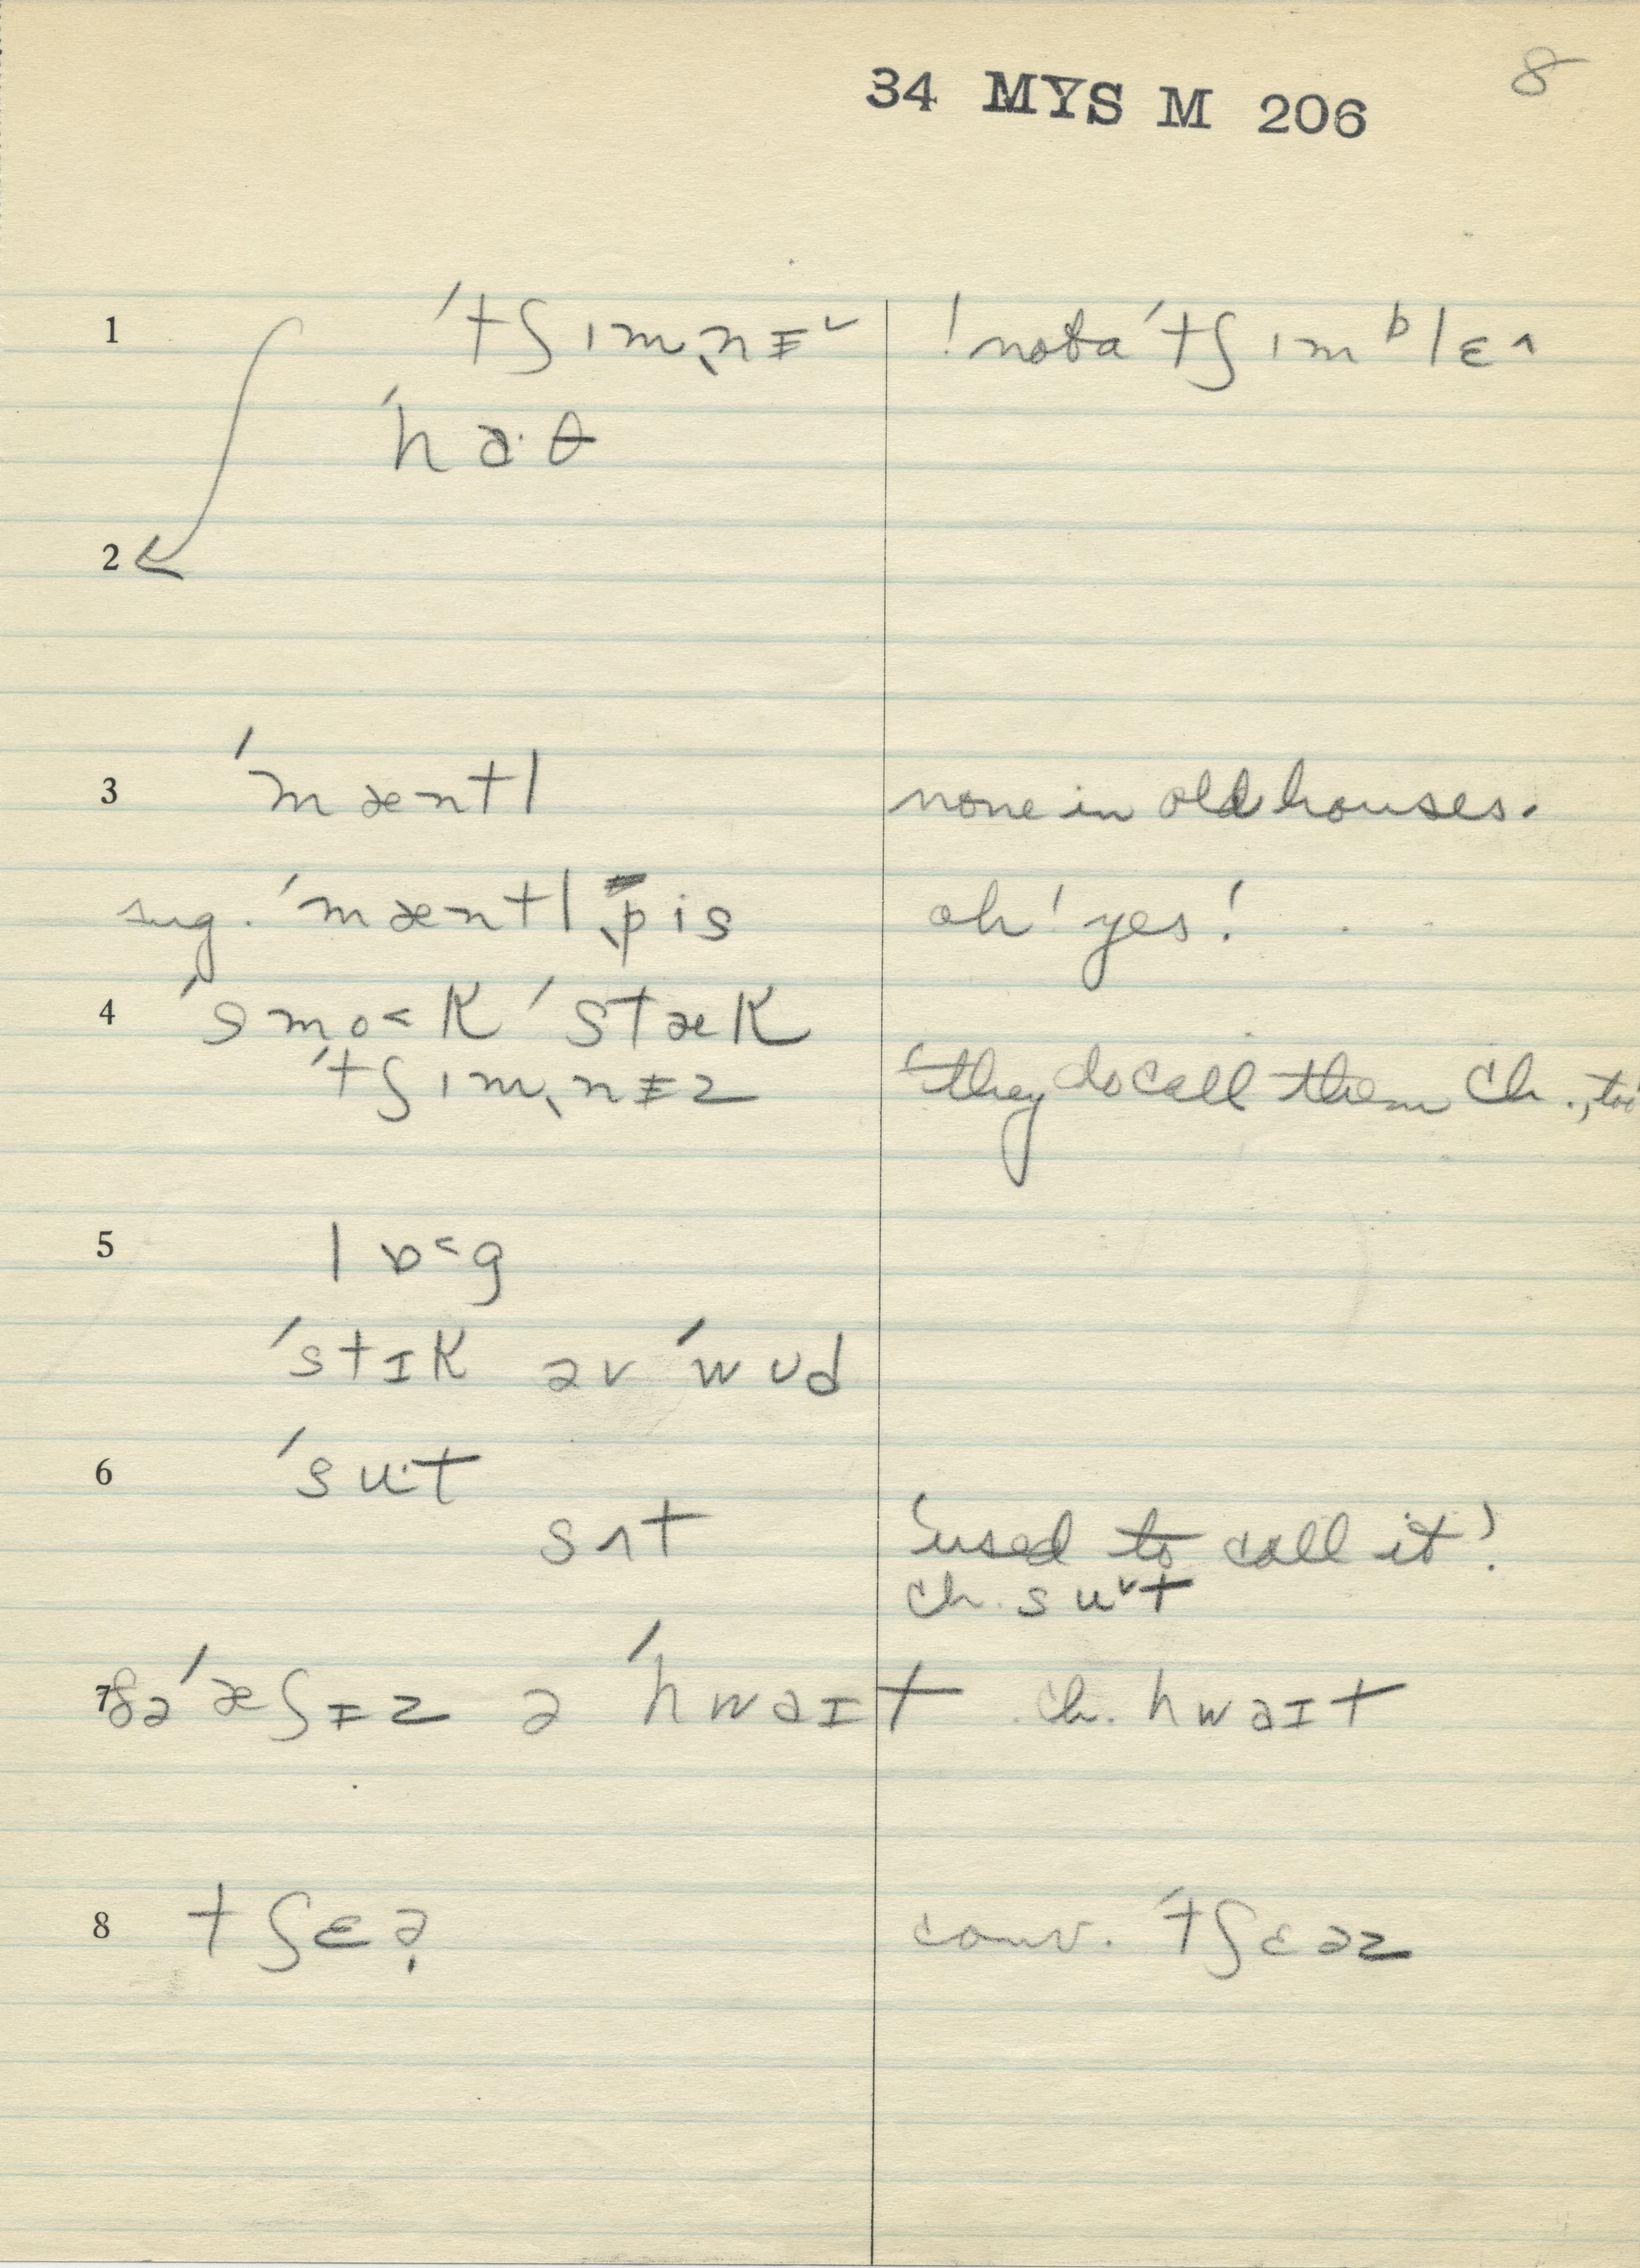 34 MYS M 206 8
1 ˈtʃɪmˌnɨ˅ ! not a ˈtʃɪmᵇlɛ^
ˈhɑ·θ
2
3 ˈmæntl none in old houses.
sug. ˈmæntlˌpis oh! yes!
4 ˈsmo˂k ˈstæk
ˈtʃɪmˌnɨz 'they do call them Ch., too'
5 lɒ˂g
ˈstɪk əv ˈwʊd
6 ˈsu·t
sʌt 'used to call it'.
ch. su˅t
7 ðə ˈæʃɨz ə ˈhwaɪt ch. hwaɪt
8 tʃɛə̣ conv. ˈtʃɛəz